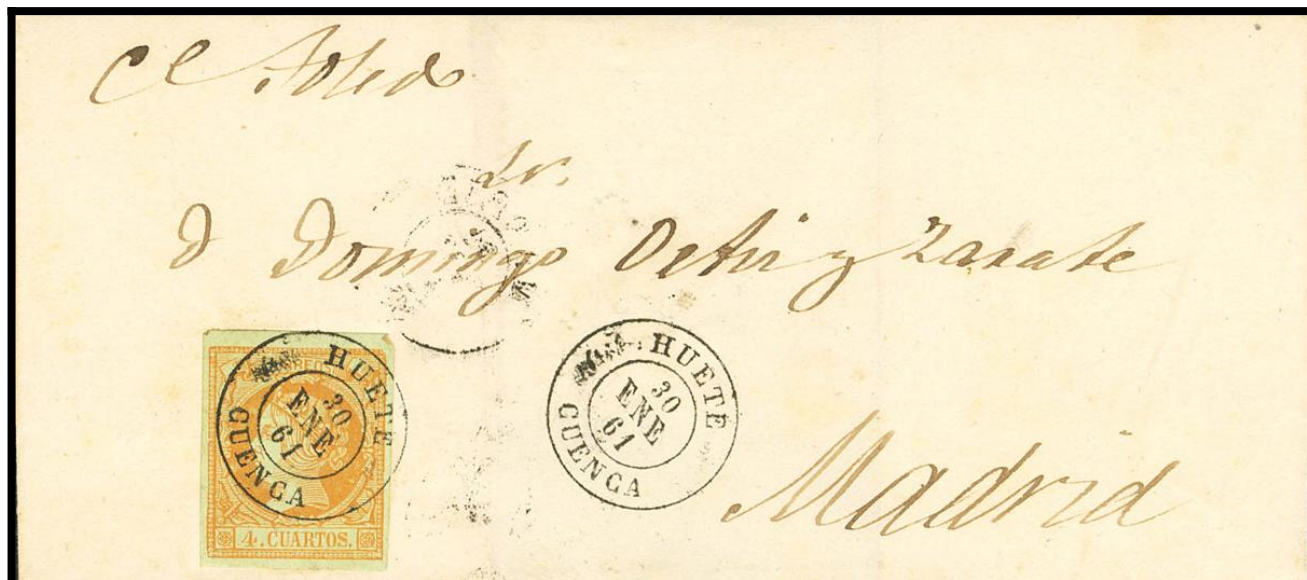 Sr.
D Domingo Ortiz y Zarate
HUETE
30
ENE
61
CUENCA
4. CUARTOS.
HUETE
30
ENE
61
CUENCA
Madrid